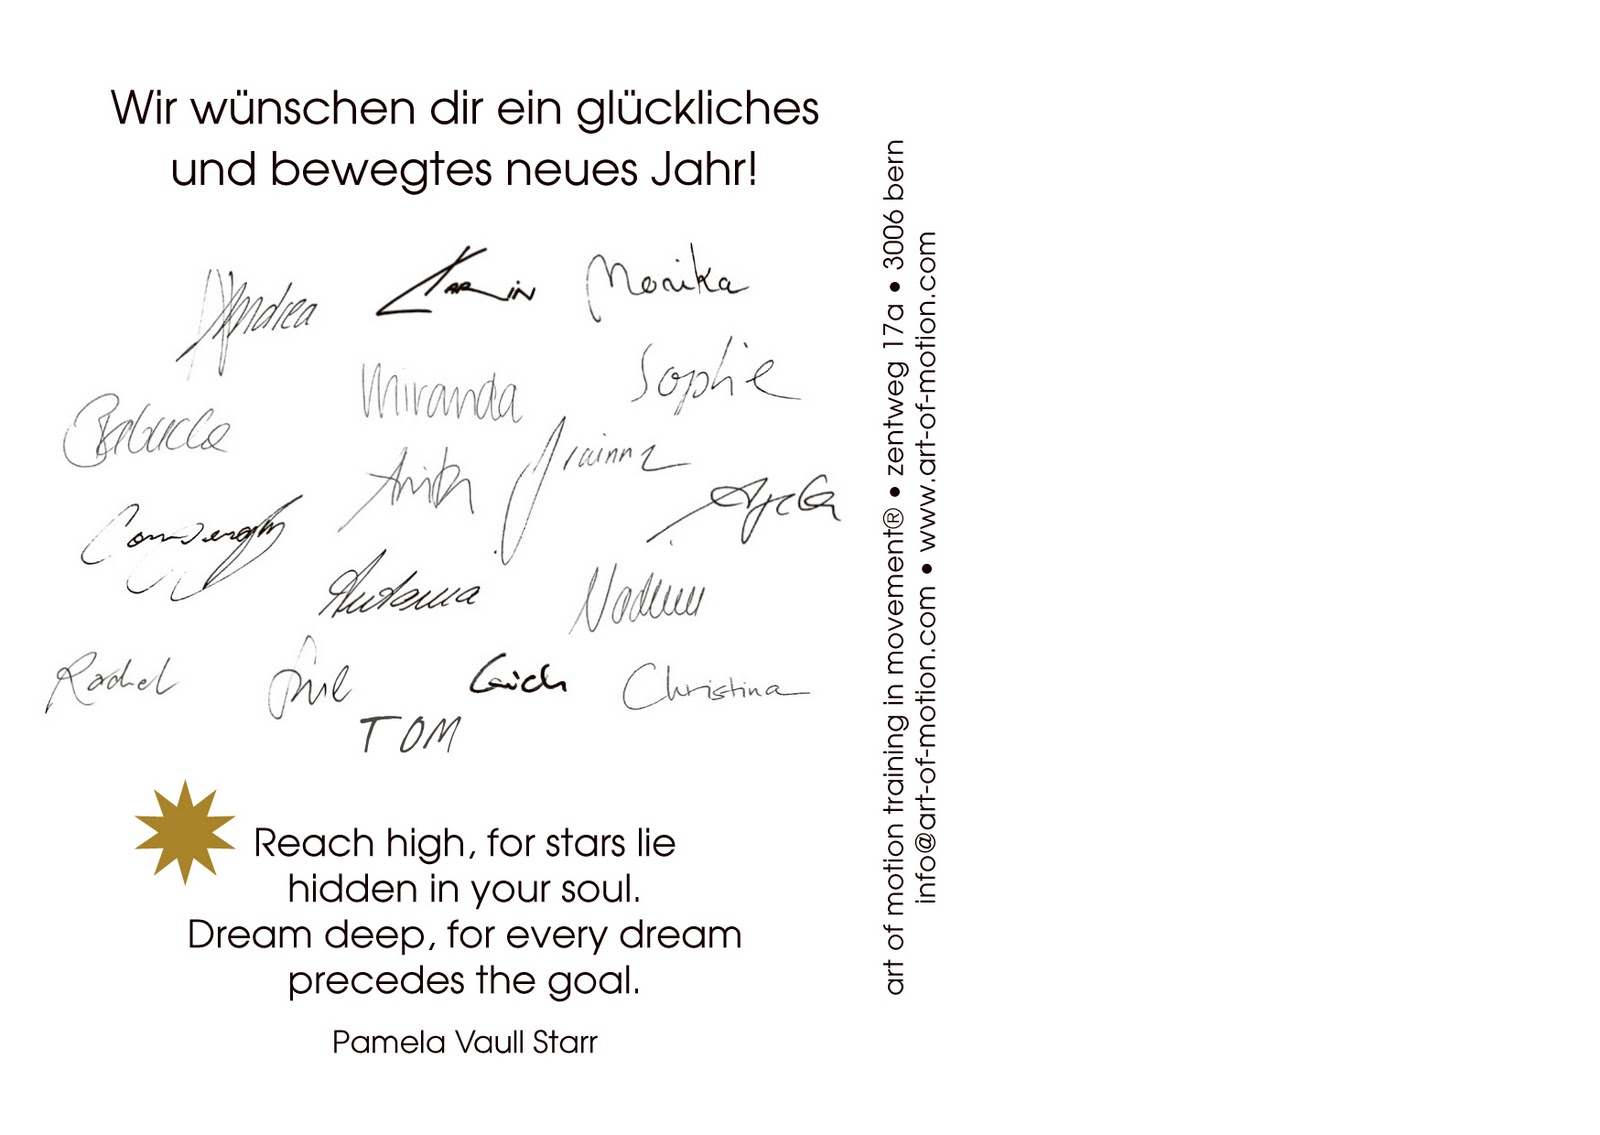 Wir wünschen dir ein glückliches
und bewegtes neues Jahr!
Andrea Karin Monika
Miranda Sophie
Rebecca
Anita
Angela
Nadine
Rachel Christina
TOM
Reach high, for stars lie
hidden in your soul.
Dream deep, for every dream
precedes the goal.
Pamela Vaull Starr
art of motion training in movement® • zentweg 17a • 3006 bern
info@art-of-motion.com • www.art-of-motion.com